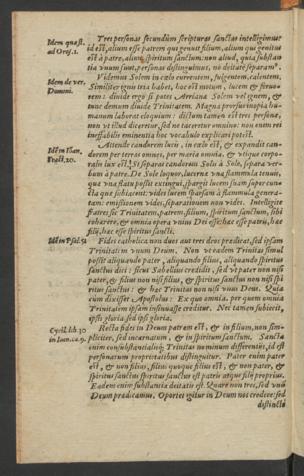 Tres personas secundùm scripturas sanctas intelligimus
Idem quæst. ad Oros. 1.
id est, alium esse patrem qui genuit filium, alium qui genitus
est à patre, alium spiritum sanctum: non aliud, quia substan
tia vnum sunt, personas distinguimus, nõ deitatē separam⁹.
Videmus Solem in cœlo currentem, fulgentem, calentem.
Idem de ver. Domini.
Similiter ignis tria habet, hoc est motum, lucem & feruo-
rem: diuide ergo si potes Arriane Solem vel ignem, &
tunc demum diuide Trinitatem. Magna prorsus inopia hu-
manum laborat eloquium: dictum tamen est tres personæ,
non vt illud diceretur, sed ne taceretur omnino: non enim rei
ineffabilis eminentia hoc vocabulo explicari potest.
Attende candorem lucis, in cœlo est, & expandit can-
Idem in Ioan. Tract. 20.
dorem per terras omnes, per maria omnia, & vtique corpo-
ralis lux est. Si separas candorem Solis à Sole, separa ver-
bum à patre. De Sole loquor, lucerna vna flammula tenuis,
quæ vna flatu possit extingui, spargit lucem suam super cun-
cta quæ subiacent: vides lucem sparsam à flammula genera-
tam: emissionem vides, separationem non vides. Intelligite
fratres sic Trinitatem, patrem, filium, spiritum sanctum, sibi
cohærere, & omnia opera vnius Dei esse: hæc esse patris, hæc
filij, hæc esse spiritus sancti.
Idem in Psal. 51
Fides catholica non duos aut tres deos prædicat, sed ipsam
Trinitatem vnum Deum. Non vt eadem Trinitas simul
possit aliquando pater, aliquando filius, aliquando spiritus
sanctus dici: sicut Sabellius credidit, sed vt pater non nisi
pater, & filius non nisi filius, & spiritus sanctus non nisi spi
ritus sanctus: & hæc Trinitas non nisi vnus Deus. Quia
cùm dixisset Apostolus: Ex quo omnia, per quem omnia
Trinitatem ipsam insinuasse creditur. Nec tamen subiecit,
ipsis gloria sed ipsi gloria.
Cyril. lib. 10 in Ioan. ca. 9.
Recta fides in Deum patrem est, & in filium, non sim-
pliciter, sed incarnatum, & in spiritum sanctum. Sancta
enim consubstantialisq́; Trinitas nominum differentijs, id est
personarum proprietatibus distinguitur. Pater enim pater
est, & non filius, filius quoque filius est, & non pater, &
spiritus sanctus spiritus sanctus est patris atque filij proprius.
Eadem enim substantia deitatis est. Quare non tres, sed vnũ
Deum prædicamus. Oportet igitur in Deum nos credere: sed
distinctè